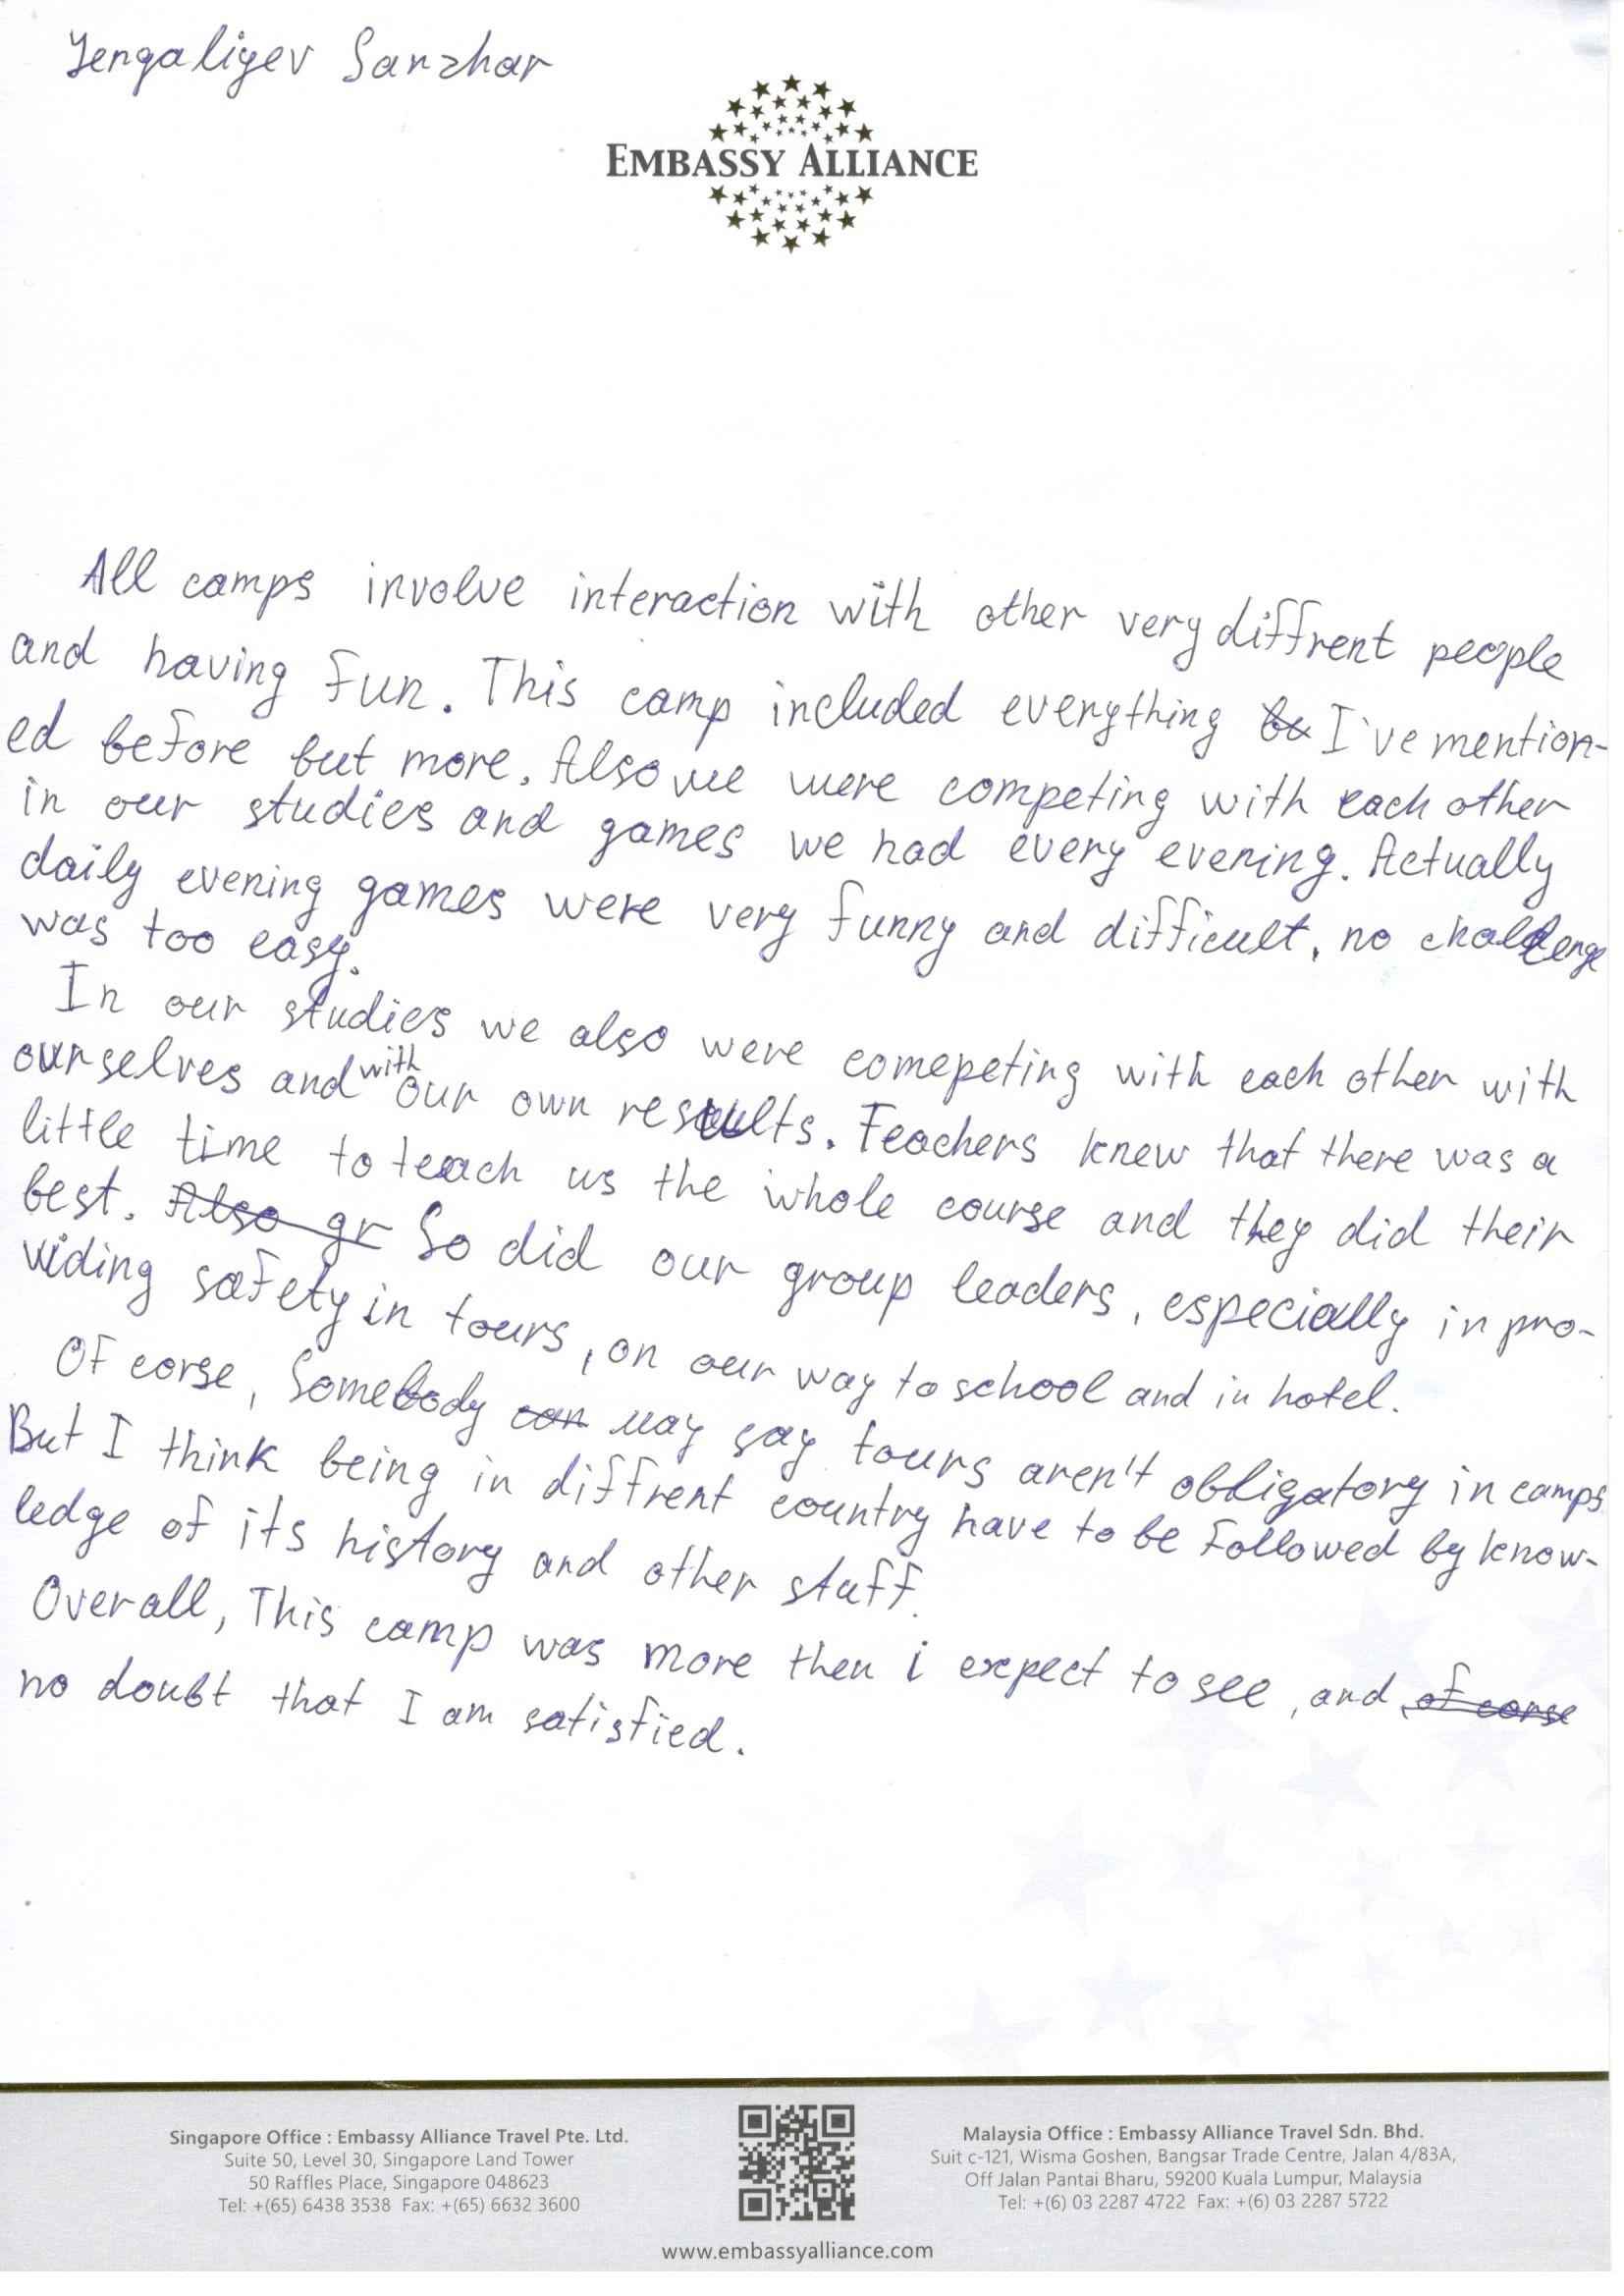 Yengaliyev Sanzhar
EMBASSY ALLIANCE
All camps involve interaction with other very diffrent people
and having fun. This camp included everything I've mention-
ed before but more. Also we were competing with each other
in our studies and games we had every evening. Actually
daily evening games were very funny and difficult, no challenge
was too easy.
In our studies we also were comepeting with each other with
ourselves and with our own results. Teachers knew that there was a
little time to teach us the whole course and they did their
best. Also gr So did our group leaders, especially in pro-
viding safety in tours, on our way to school and in hotel.
Of corse, Somebody can may say tours aren't obligatory in camps.
But I think being in diffrent country have to be followed by know-
ledge of its history and other stuff.
Overall, This camp was more then i expect to see, and of corse
no doubt that I am satisfied.
Singapore Office : Embassy Alliance Travel Pte. Ltd.
Suite 50, Level 30, Singapore Land Tower
50 Raffles Place, Singapore 048623
Tel: +(65) 6438 3538 Fax: +(65) 6632 3600
Malaysia Office : Embassy Alliance Travel Sdn. Bhd.
Suit c-121, Wisma Goshen, Bangsar Trade Centre, Jalan 4/83A,
Off Jalan Pantai Bharu, 59200 Kuala Lumpur, Malaysia
Tel: +(6) 03 2287 4722 Fax: +(6) 03 2287 5722
www.embassyalliance.com